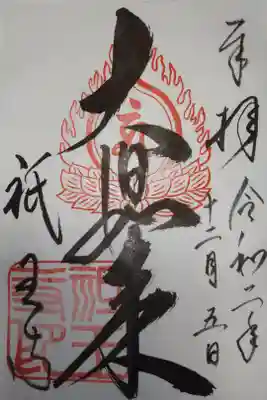 奉拝 令和二年
十二月五日
大日如来
祇王寺